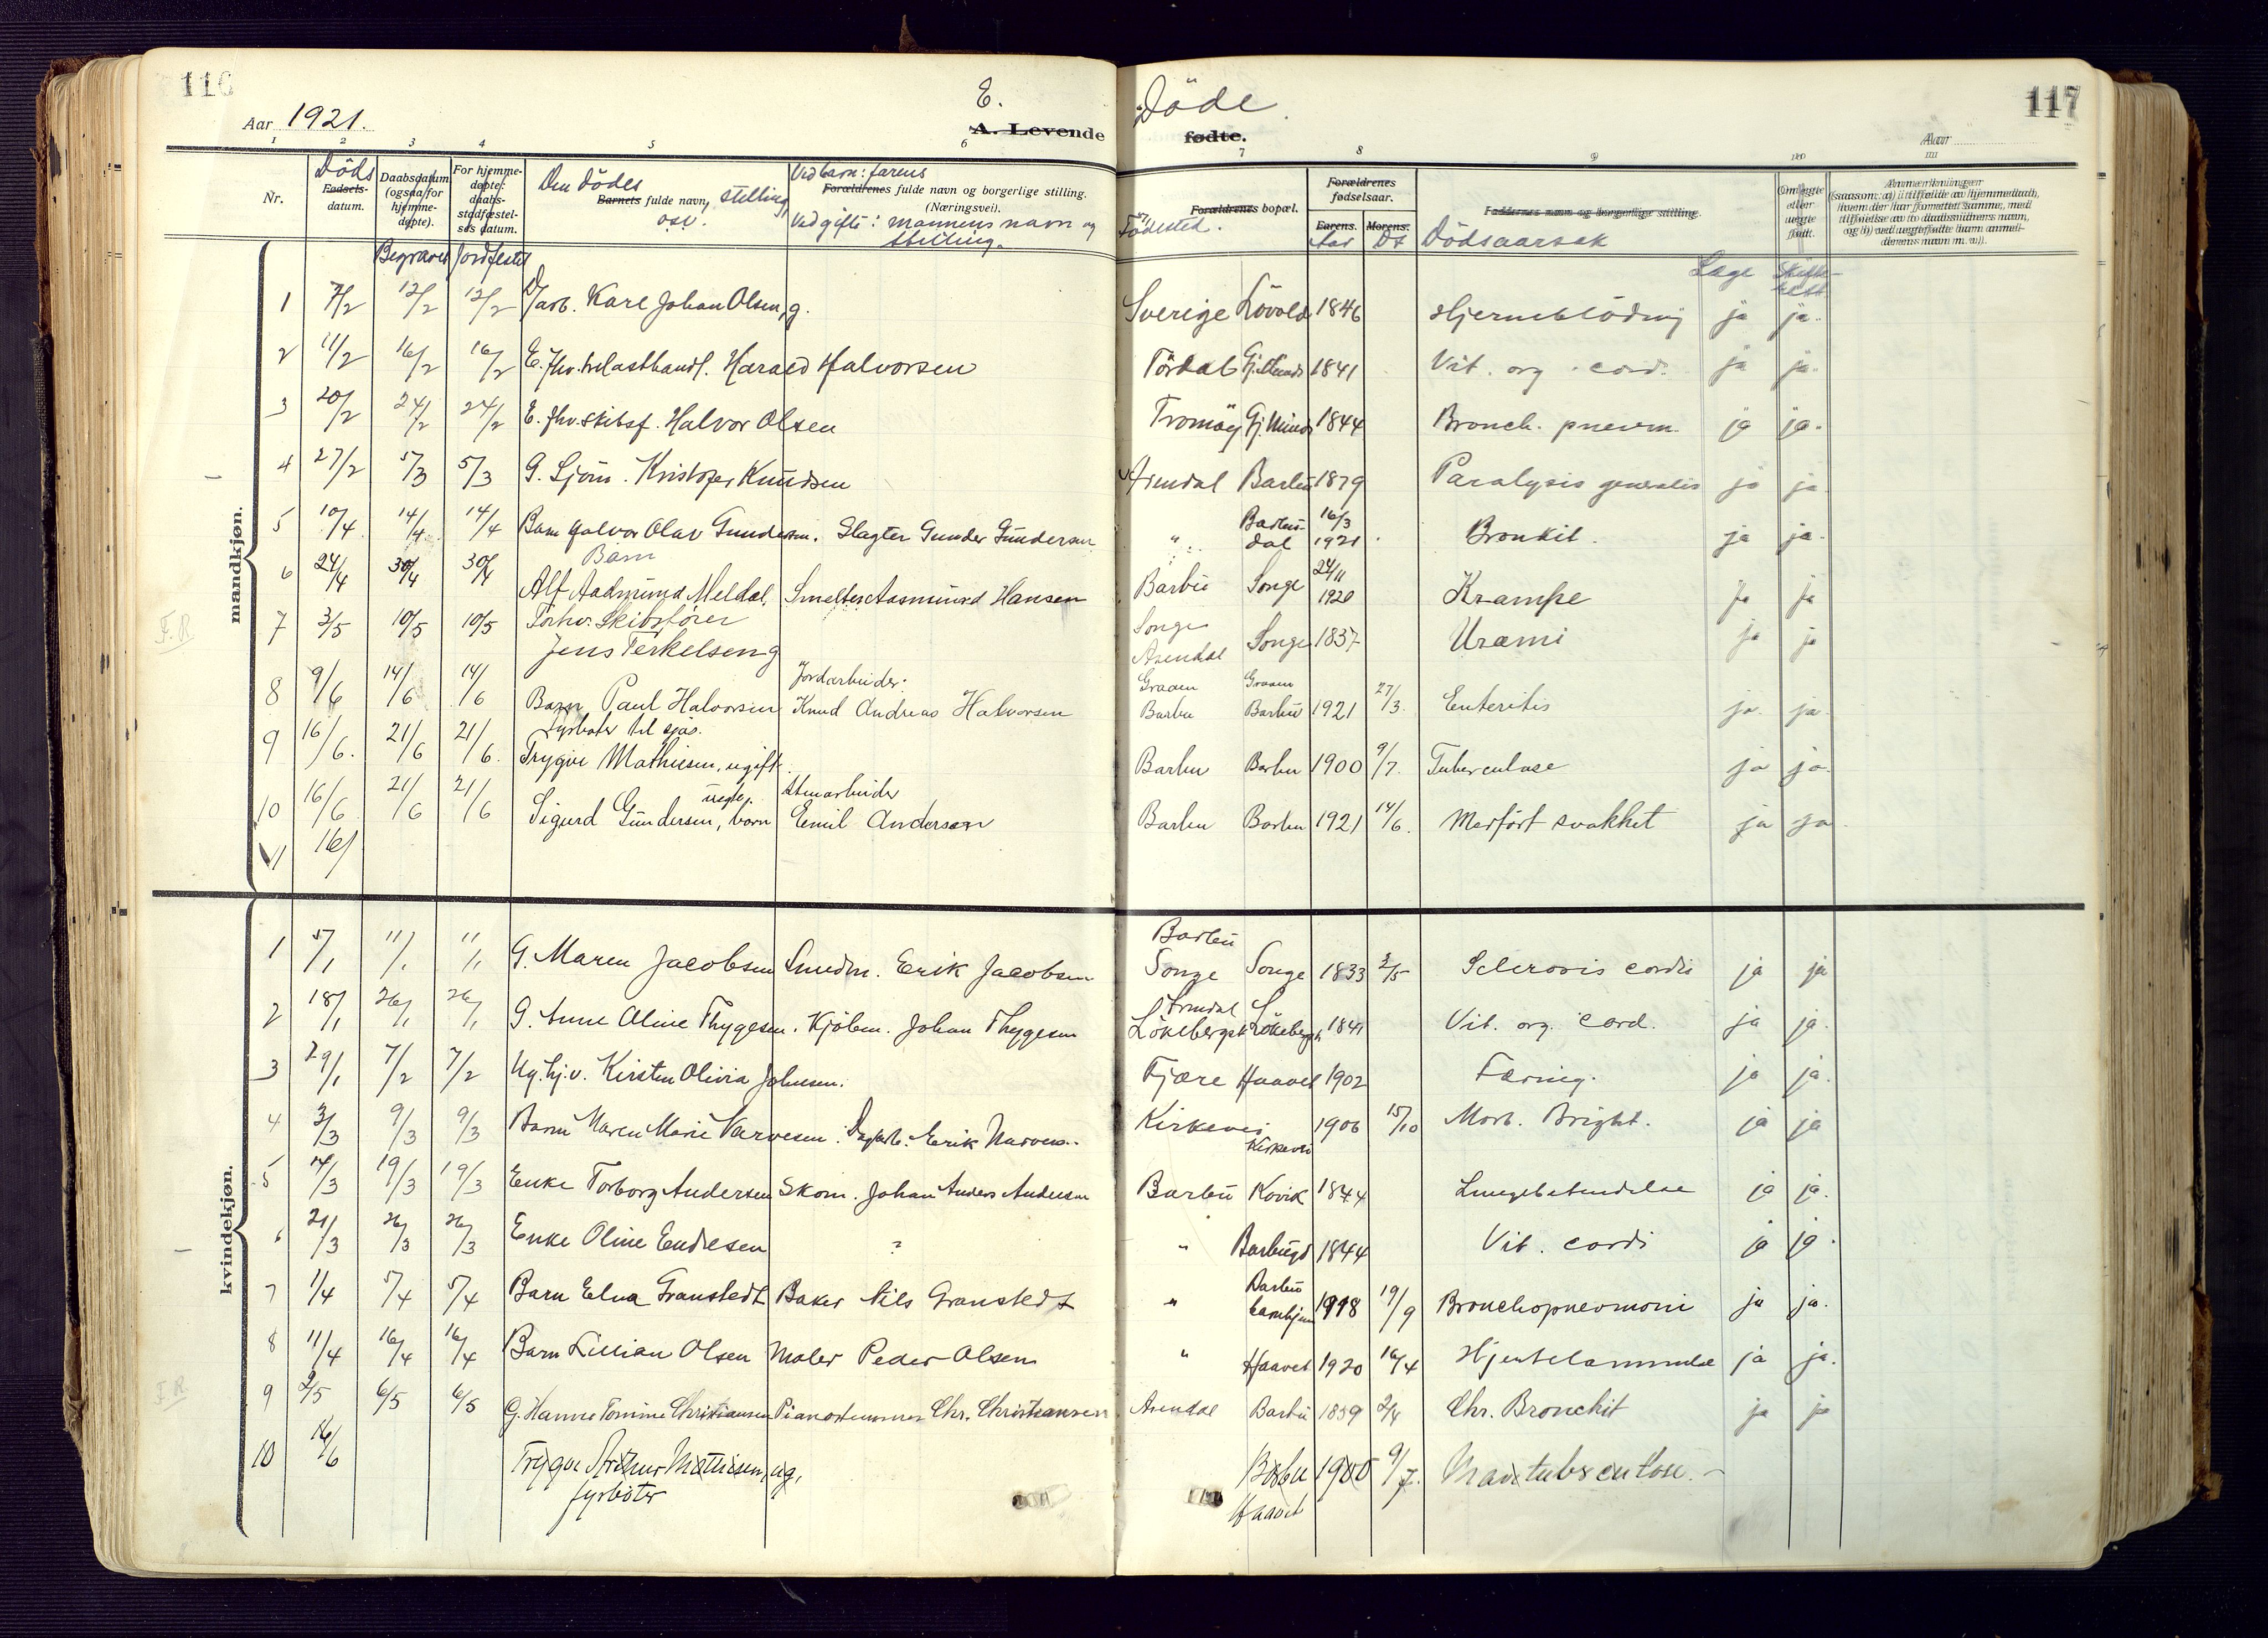 116
Aar 1921.
E. Döde
A. Levende fødte.
117
Aar
1 2 3 4 5 6 7 8 9 10 11
Nr.
Döds
Fødsels-
datum.
Daabsdatum
(ogsaa for
hjemme-
døpte).
Begravet
For hjemme-
døpte:
daabs-
stadfæstel-
ses datum.
Jordfestet
Den dödes stilling
Barnets fulde navn,
osv.
Ved barn: farens
Forældrenes fulde navn og borgerlige stilling.
(Næringsvei).
Ved gifte: mannens navn og
stilling.
Födested.
Forældrenes bopæl.
Forældrenes
fødselsaar.
Farens. Morens.
Aar Dt
Faddernes navn og borgerlige stilling.
Dödsaarsak
Læge
Om ægte
eller
uegte
født.
Skifte-
rett
Anmerkninger
(saasom: a) i tilfælde av hjemmedaab,
hvem der har forrettet samme, med
tilføielse av to daabsvidners navn,
og b) ved uegte fødte barn anmel-
derens navn m. v.).
mandkjøn.
1 7/2 12/2 12/2 D/arb. Karl Johan Olsen, g. Sverige Lövold 1846 Hjerneblödning ja ja.
2 11/2 16/2 16/2 E. fhv. trelasthandl. Harald Halvorsen Tördal Gj. Minde 1841 Vit. org. cord. ja ja.
3 20/2 24/2 24/2 E. fhv. skibsf. Halvor Olsen Tromöy Gj. Minde 1844 Bronch. pneum. ja ja.
4 27/2 5/3 5/3 G. Sjöm. Kristofer Knudsen Arendal Barbu 1879 Paralysis generalis ja ja.
5 10/4 14/4 14/4 Barn Halvor Olav Gundersen. Slagter Gunder Gundersen " Barbu- 16/3
dal 1921 Bronkit. ja ja.
Barn
6 24/4 30/4 30/4 Alf Aadmund Meldal, Smelter Aasmund Hansen Barbu Songe 24/11
1920 Krampe ja ja
F.R
7 3/5 10/5 10/5 Forhv. Skibsförer Songe
Jens Terkelsen g Arendal Songe 1837 Uræmi ja ja
Jordarbeider. Graaen Graaen
8 9/6 14/6 14/6 Barn Paul Halvorsen Knud Andreas Halvorsen Barbu Barbu 1921 27/3. Enteritis ja. ja.
Fyrböter til sjös.
9 16/6. 21/6 21/6. Trygve Mathiesen, ugift. Barbu Barbu 1900 9/7. Tuberculose ja ja.
uegte. Stenarbeider
10 16/6 21/6 21/6 Sigurd Gundersen, barn Emil Andersen Barbu Barbu 1921 14/6. Medfört svakhet ja ja
11 16/
kvindekjøn.
Barbu
1 5/1 11/1 11/1 G. Maren Jacobsen Smedm. Erik Jacobsen Songe Songe 1833 2/5 Sclerosis cordis ja ja
Arendal
2 18/1 26/1 26/1 G. Anne Oline Thygesen. Kjöbm. Johan Thygesen Lökebergsk Lökebergsk 1841 Vit. org. cord. ja ja.
3 29/1 7/2 7/2 Ug. hj.v. Kirsten Olivia Johnsen. Fjære Haavet 1902 Tæring. ja ja.
4 3/3 9/3 9/3 Barn Maren Marie Narvesen. Dagarb. Erik Narvesen. Kirkevei Kirkevei 1906 15/10 Morb. Bright. ja ja
5 14/3 19/3 19/3 Enke Torborg Andersen Skom. Johan Anders Andersen Barbu Kovik 1844 Lungebetendelse ja ja.
6 21/3 26/3 26/3 Enke Oline Endresen ? " Barbugt 1844 Vit. cordi ja ja.
7 1/4 5/4 5/4 Barn Elna Granstedt Baker Nils Granstedt " Barbu
barnhjem 1918 19/9 Bronchopneumoni ja ja.
8 11/4 16/4 16/4 Barn Lillian Olsen Maler Peder Olsen " Haavet 1920 16/4 Hjertelammelse ja ja.
F.R
9 2/5 6/5 6/5 G. Hanna Tomine Christiansen Pianostemmer Chr. Christiansen Arendal Barbu 1859 2/4 Chr. Bronchit ja ja
10 16/6 Trygve Arthur Mathisen, ug, Barbu 1900 9/7.
fyrböter Haavet